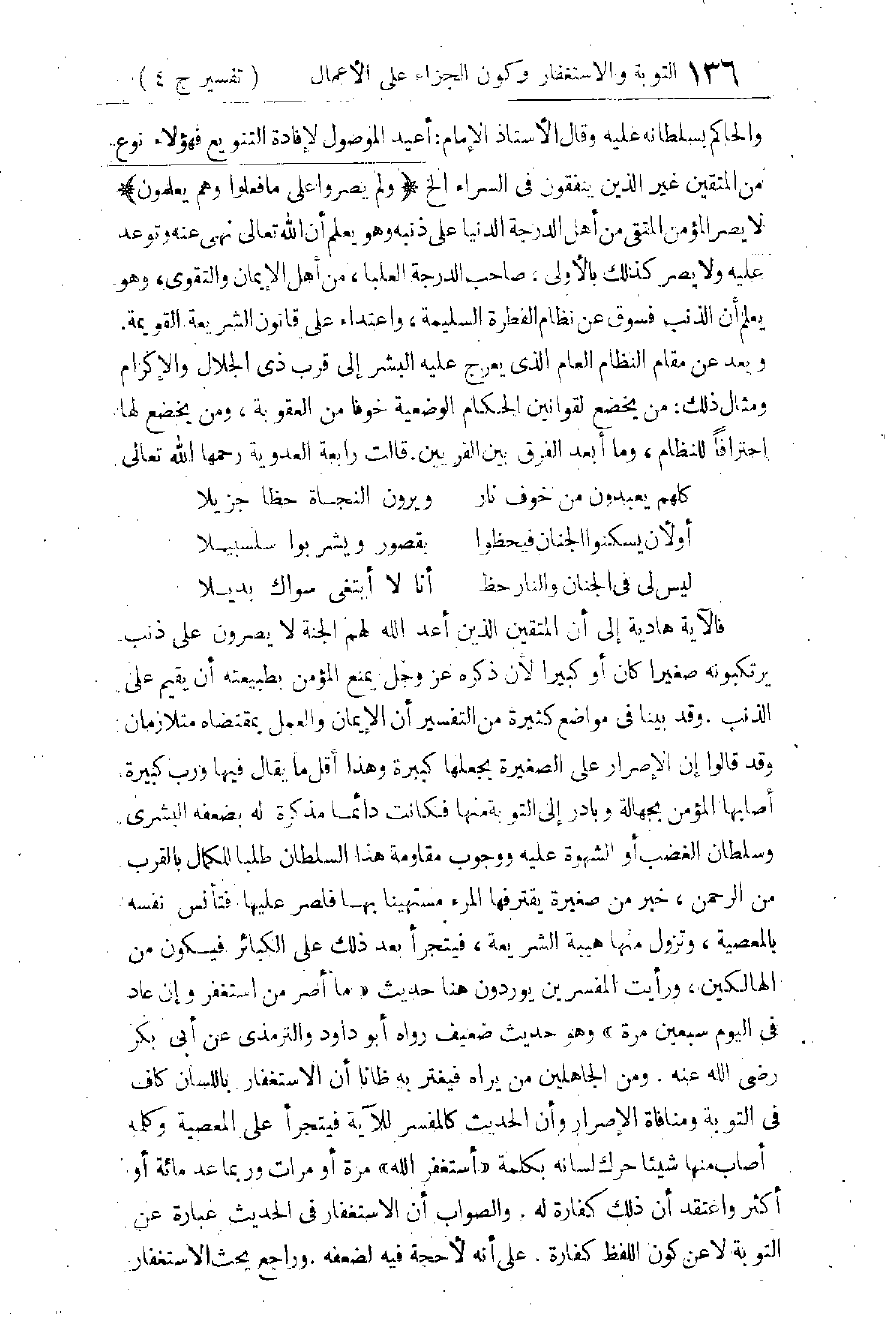 ١٣٦ التوبة والاستغفار وكون الجزاء على الأعمال ( تفسير ج ٤ )
والحاكم بسلطانه عليه وقال الأستاذ الإمام: أعيد الموصول لإفادة التنويع فهؤلاء نوع
من المتقين غير الذين ينفقون فى السراء الخ ﴿ ولم يصروا على مافعلوا وهم يعلمون ﴾
لا يصر المؤمن المتقى من أهل الدرجة الدنيا على ذنبه وهو يعلم أن الله تعالى نهى عنه وتوعد
عليه ولا يصر كذلك بالأولى ، صاحب الدرجة العليا ، من أهل الإيمان والتقوى ، وهو
يعلم أن الذنب فسوق عن نظام الفطرة السليمة ، واعتداء على قانون الشريعة القويمة .
وبعد عن مقام النظام العام الذى يعرج عليه البشر إلى قرب ذى الجلال والإكرام
ومثال ذلك : من يخضع لقوانين الحكام الوضعية خوفا من العقوبة ، ومن يخضع لها
احترافاً للنظام ، وما أبعد الفرق بين الفريين . قالت رابعة العدوية رحمها الله تعالى
كلهم يعبدون من خوف نار ويرون النجاة حظا جزيلا
أولأن يسكنوا الجنان فيحظوا بقصور ويشربوا سلسبيلا
ليس لى فى الجنان والنار حظ أنا لا أبتغى سواك بديلا
فالآية هادية إلى أن المتقين الذين أعد الله لهم الجنة لا يصرون على ذنب
يرتكبونه صغيرا كان أو كبيرا لأن ذكره عز وجل يمنع المؤمن بطبيعته أن يقيم على
الذنب . وقد بينا فى مواضع كثيرة من التفسير أن الإيمان والعمل بمقتضاه متلازمان
وقد قالوا إن الإصرار على الصغيرة يجعلها كبيرة وهذا أقل ما يقال فيها ورب كبيرة
أصابها المؤمن بجهالة وبادر إلى التوبة منها فكانت دائما مذكرة له بضعفه البشرى
وسلطان الغضب أو الشهوة عليه ووجوب مقاومة هذا السلطان طلبا للكمال بالقرب
من الرحمن ، خير من صغيرة يقترفها المرء مستهينا بها فلصر عليها فتأنس نفسه
بالمعصية ، وتزول منها هيبة الشريعة ، فيتجرأ بعد ذلك على الكبائر فيكون من
الهالكين ، ورأيت المفسرين يوردون هنا حديث « ما أصر من استغفر وإن عاد
فى اليوم سبعين مرة » وهو حديث ضعيف رواه أبو داود والترمذى عن أبى بكر
رضى الله عنه . ومن الجاهلين من يراه فيغتر به ظانا أن الاستغفار باللسان كاف
فى التوبة ومنافاة الإصرار وأن الحديث كالمفسر للآية فيتجرأ على المعصية وكلما
أصاب منها شيئا حرك لسانه بكلمة «أستغفر الله» مرة أو مرات وربما عد مائة أو
أكثر واعتقد أن ذلك كفارة له . والصواب أن الاستغفار فى الحديث عبارة عن
التوبة لا عن كون اللفظ كفارة . على أنه لاحجة فيه لضعفه . وراجع بحث الاستغفار